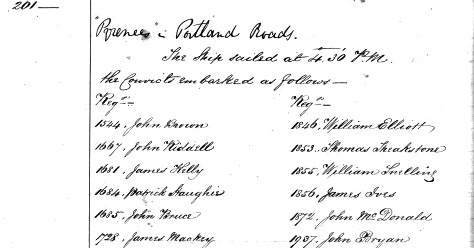 201 —
"Pyrenees" in Portland Roads.
The Ship sailed at 4.30 P.M.
the Convicts embarked as follows —
Reg.n — Reg.n —
1544. John Brown 1846. William Elliott
1667. John Riddell 1853. Thomas Treakstone
1681. James Kelly 1855. William Snelling
1684. Patrick Haugher 1856. James Ives
1685. John Bruce 1872. John McDonald
1728. James Mackey 1907. John Bryan